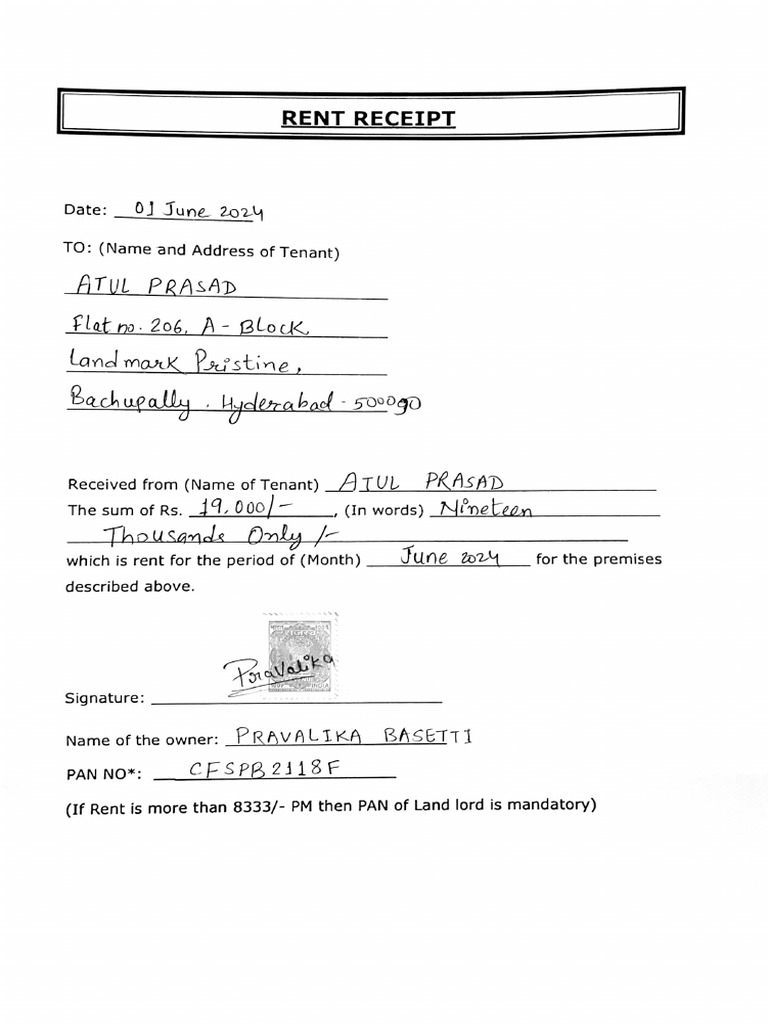 RENT RECEIPT
Date: 01 June 2024
TO: (Name and Address of Tenant)
ATUL PRASAD
Flat no. 206, A - Block,
Landmark Pristine,
Bachupally . Hyderabad - 500090
Received from (Name of Tenant) ATUL PRASAD
The sum of Rs. 19,000/- , (In words) Nineteen
Thousands Only /-
which is rent for the period of (Month) June 2024 for the premises
described above.
Pravalika
INDIA
Signature:
Name of the owner: PRAVALIKA BASETTI
PAN NO*: CFSPB2118F
(If Rent is more than 8333/- PM then PAN of Land lord is mandatory)